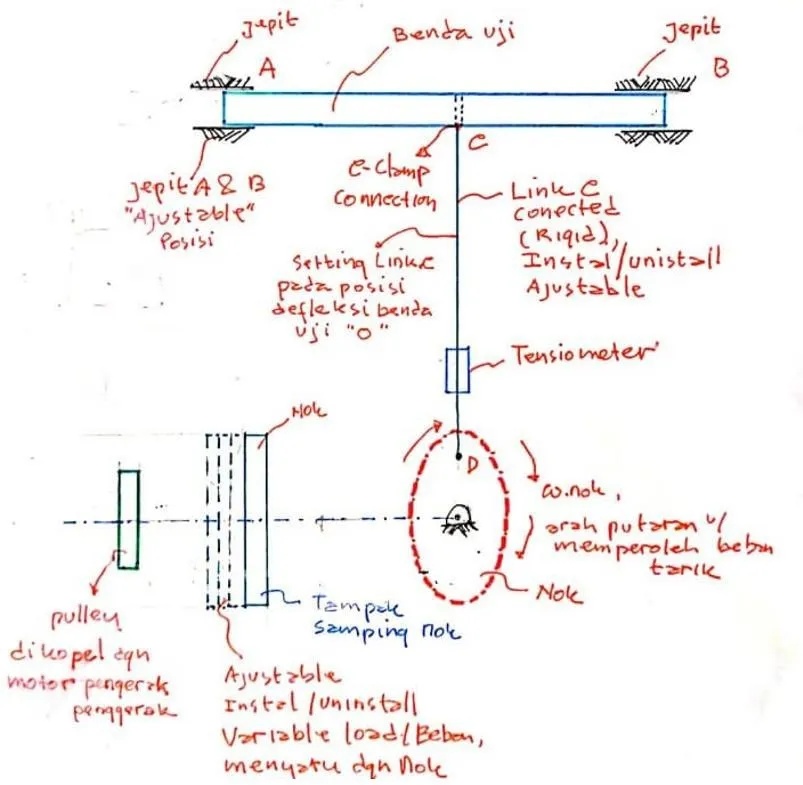 Jepit
Benda uji
Jepit
A
B
C
Jepit A & B
"Ajustable"
Posisi
C-Clamp
Connection
Link C
conected
(Rigid),
Instal/unistall
Ajustable
Setting Link C
pada posisi
defleksi benda
uji "0"
Tensiometer
Nok
D
ω.nok,
arah putaran u/
memperoleh beban
tarik
Nok
Tampak
Samping nok
pulley
dikopel dgn
motor pengerak
penggerak
Ajustable
Instal/uninstall
Variable load/Beban,
menyatu dgn Nok